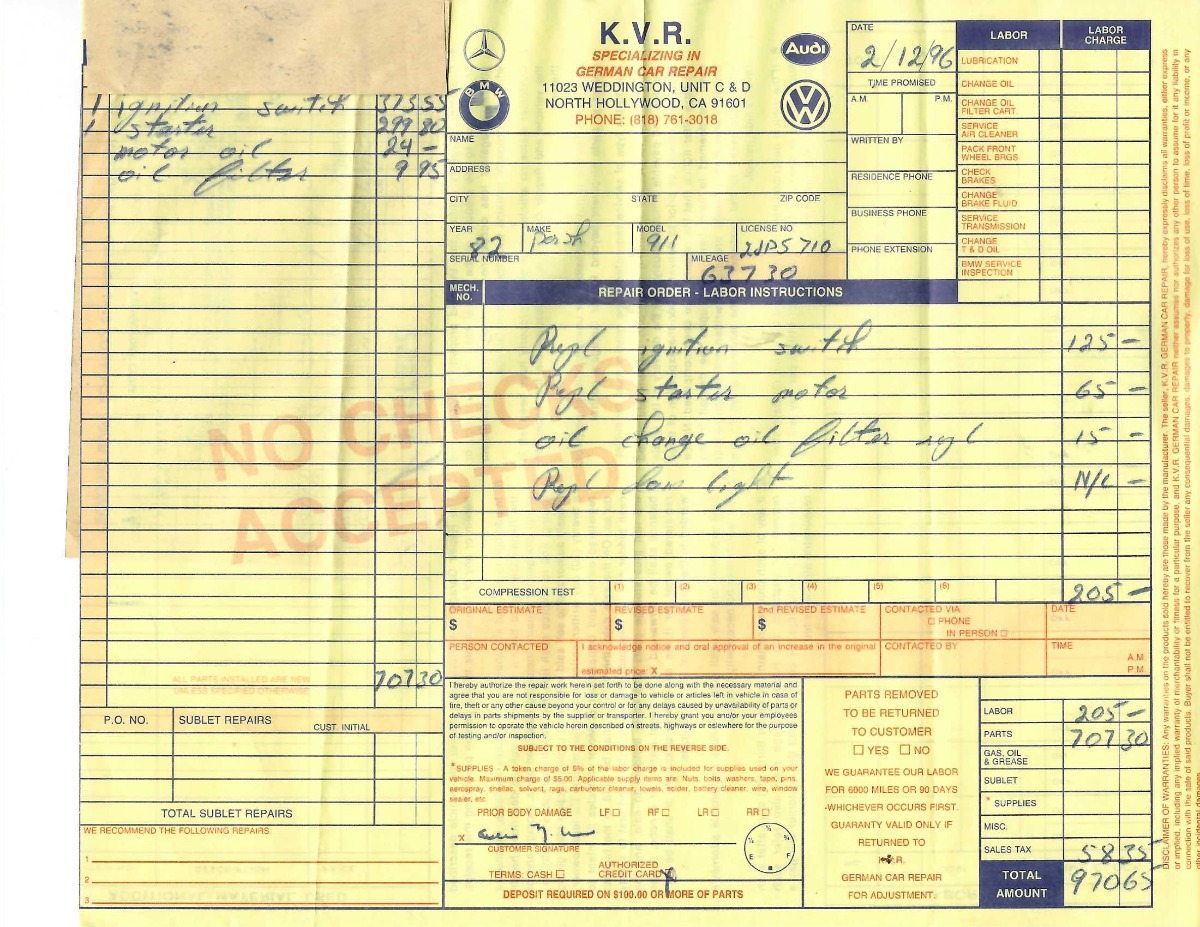 1 ignition switch 373.55
1 starter 299 80
motor oil 24 -
oil filter 9 95
ALL PARTS INSTALLED ARE NEW
UNLESS SPECIFIED OTHERWISE
707 30
P.O. NO. SUBLET REPAIRS CUST. INITIAL
TOTAL SUBLET REPAIRS
WE RECOMMEND THE FOLLOWING REPAIRS
1
2
3
NO CHECKS
ACCEPTED
K.V.R.
SPECIALIZING IN
GERMAN CAR REPAIR
11023 WEDDINGTON, UNIT C & D
NORTH HOLLYWOOD, CA 91601
PHONE: (818) 761-3018
BMW
Audi
NAME
ADDRESS
CITY STATE ZIP CODE
YEAR 82 MAKE Porsh MODEL 911 LICENSE NO 2JPS710
SERIAL NUMBER MILEAGE 63730
DATE 2/12/96
TIME PROMISED
A.M. P.M.
WRITTEN BY
RESIDENCE PHONE
BUSINESS PHONE
PHONE EXTENSION
LABOR LABOR CHARGE
LUBRICATION
CHANGE OIL
CHANGE OIL FILTER CART.
SERVICE AIR CLEANER
PACK FRONT WHEEL BRGS
CHECK BRAKES
CHANGE BRAKE FLUID
SERVICE TRANSMISSION
CHANGE T & D OIL
BMW SERVICE INSPECTION
MECH. NO. REPAIR ORDER - LABOR INSTRUCTIONS
Repl ignition switch 125 -
Repl starter motor 65 -
oil change oil filter repl 15 -
Repl light N/C -
COMPRESSION TEST (1) (2) (3) (4) (5) (6) 205 -
ORIGINAL ESTIMATE $ REVISED ESTIMATE $ 2nd REVISED ESTIMATE $ CONTACTED VIA PHONE IN PERSON DATE
PERSON CONTACTED I acknowledge notice and oral approval of an increase in the original estimated price. X CONTACTED BY TIME A.M. P.M.
I hereby authorize the repair work herein set forth to be done along with the necessary material and
agree that you are not responsible for loss or damage to vehicle or articles left in vehicle in case of
fire, theft or any other cause beyond your control or for any delays caused by unavailability of parts or
delays in parts shipments by the supplier or transporter. I hereby grant you and/or your employees
permission to operate the vehicle herein described on streets, highways or elsewhere for the purpose
of testing and/or inspection.
SUBJECT TO THE CONDITIONS ON THE REVERSE SIDE.
*SUPPLIES - A token charge of 5% of the labor charge is included for supplies used on your
vehicle. Maximum charge of $5.00. Applicable supply items are: Nuts, bolts, washers, tape, pins,
aerospray, shellac, solvent, rags, carburetor cleaner, towels, solder, battery cleaner, wire, window
sealer, etc.
PRIOR BODY DAMAGE LF RF LR RR
X
CUSTOMER SIGNATURE
E ¼ ½ ¾ F
TERMS: CASH AUTHORIZED CREDIT CARD
DEPOSIT REQUIRED ON $100.00 OR MORE OF PARTS
PARTS REMOVED
TO BE RETURNED
TO CUSTOMER
YES NO
WE GUARANTEE OUR LABOR
FOR 6000 MILES OR 90 DAYS
-WHICHEVER OCCURS FIRST.
GUARANTY VALID ONLY IF
RETURNED TO
K.V.R.
GERMAN CAR REPAIR
FOR ADJUSTMENT.
LABOR 205 -
PARTS 707 30
GAS, OIL & GREASE
SUBLET
* SUPPLIES
MISC.
SALES TAX 58 35
TOTAL AMOUNT 970 65
DISCLAIMER OF WARRANTIES: Any warranties on the products sold hereby are those made by the manufacturer. The seller, K.V.R. GERMAN CAR REPAIR, hereby expressly disclaims all warranties, either express
or implied, including any implied warranty of merchantability or fitness for a particular purpose, and K.V.R. GERMAN CAR REPAIR neither assumes nor authorizes any other person to assume for it any liability in
connection with the sale of said products. Buyer shall not be entitled to recover from the seller any consequential damages, damages to property, damage for loss of use, loss of time, loss of profit or income, or any
other incidental damages.